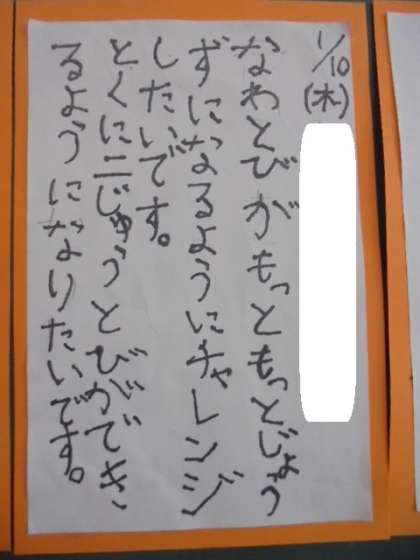 1/10(木)
なわとびがもっともっとじょう
ずになるようにチャレンジ
したいです。
とくに二じゅうとびができ
るようになりたいです。